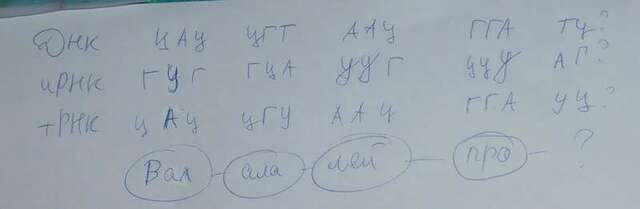 ДНК ЦАЦ ЦГТ ААЦ ГГА ТЦ?
иРНК ГУГ ГЦА УУГ ЦЦУ АГ?
тРНК ЦАЦ ЦГУ ААЦ ГГА УЦ?
Вал - ала - лей - про - ?